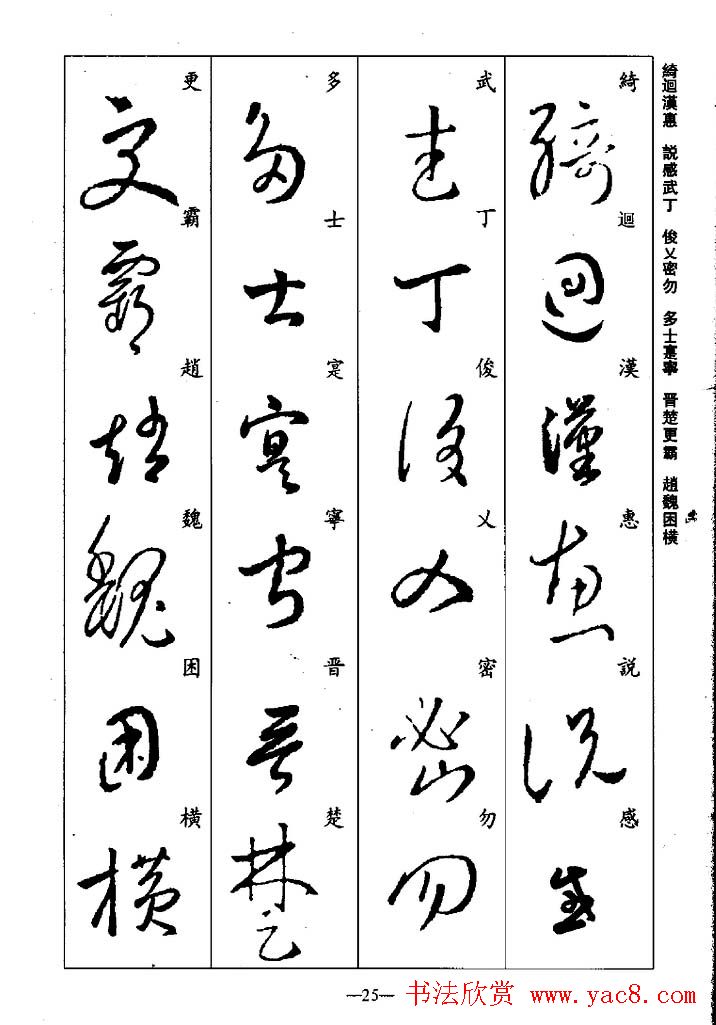 綺迴漢惠　説感武丁　俊乂密勿　多士寔寧　晉楚更霸　趙魏困横
綺迴漢惠説感
武丁俊乂密勿
多士寔寧晉楚
更霸趙魏困橫
—25—
书法欣赏 www.yac8.com